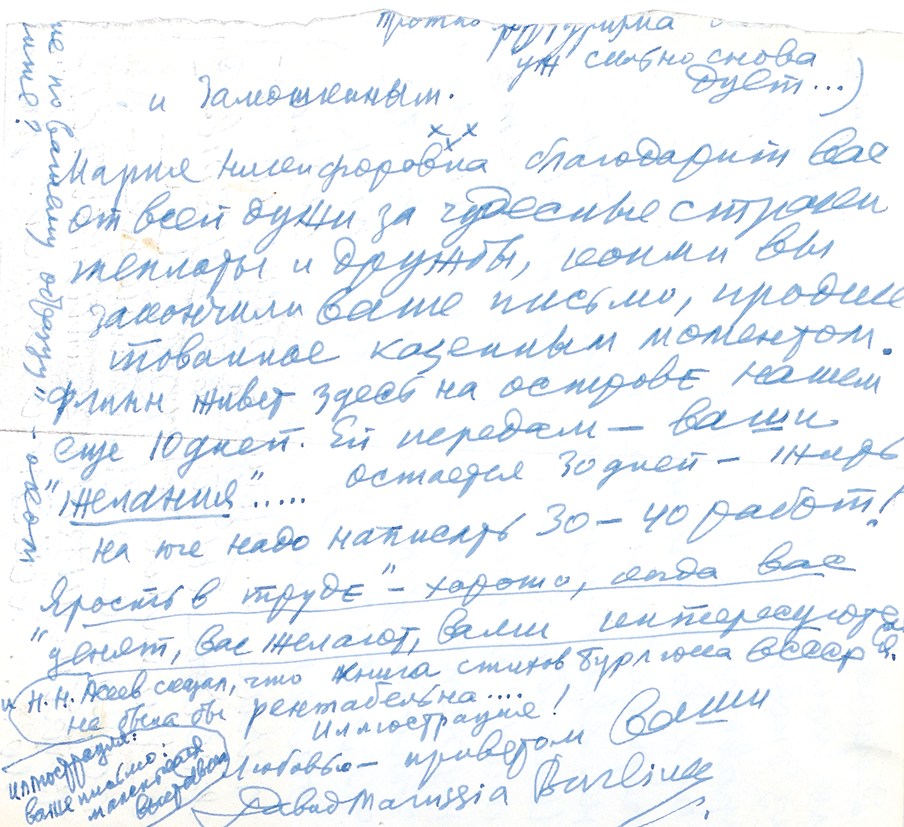 уж сильно снова
дует...)
и Замошкиным.
Мария Никифоровна благодарит вас
от всей души за чудесные строки
теплоты и дружбы, коими вы
закончили ваше письмо, продик
тованное казенным моментом.
Флинн живет здесь на острове нашем
еще 10 дней. Ей передам — ваши
"желания"..... остается 30 дней — жить
на юге надо написать 30 — 40 работ!
Ярость в труде" — хорошо, когда вас
"ценят, вас желают, вами интересуются.
и Н.Н. Асеев сказал, что книга стихов Бурлюка в СССР
не была бы рентабельна....
Иллюстрация!
Любовью — приветом Ваши
David Marussia Burliuk
иллюстрация:
ваше письмо:
маленькая
выставка
не по вашему образу" — оком